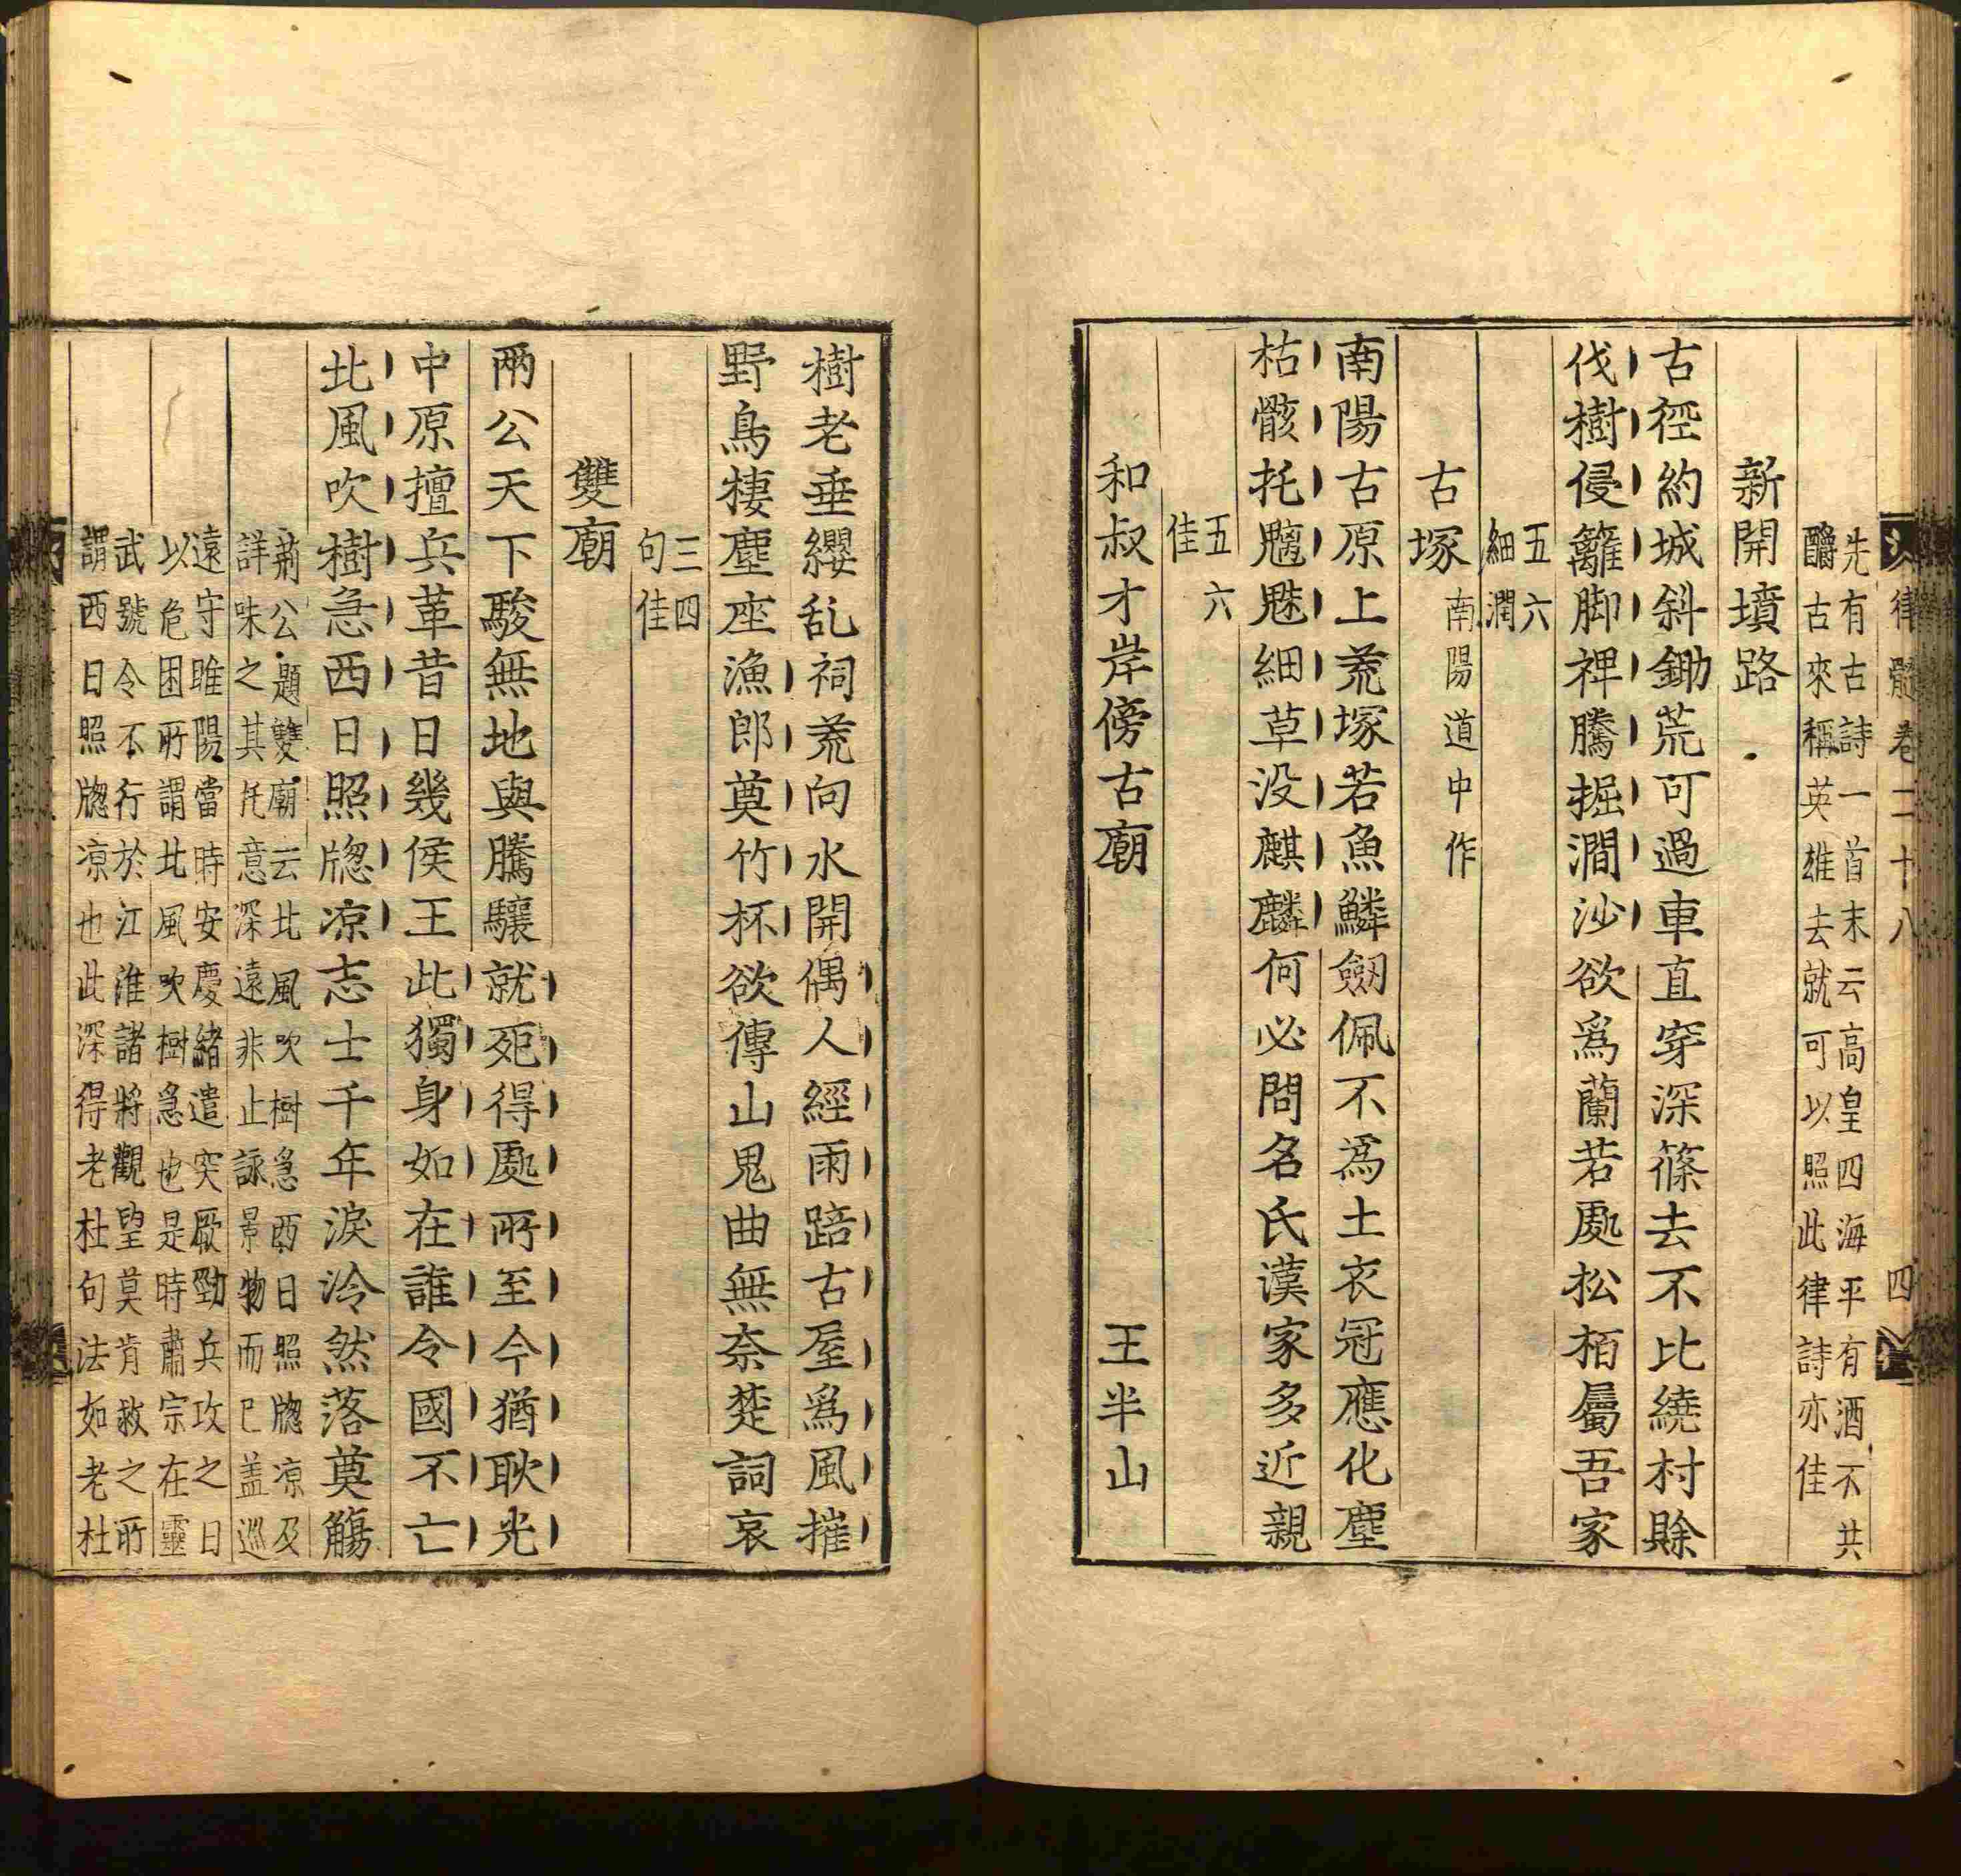 律髓卷二十八 四
先有古詩一首末云高皇四海平有酒不共
酹古來稱英雄去就可以照此律詩亦佳
新開墳路
古徑約城斜鋤荒可過車直穿深篠去不比繞村賒
伐樹侵籬脚裨騰掘澗沙欲爲蘭若處松栢屬吾家
五六
細潤
古塚 南陽道中作
南陽古原上荒塚若魚鱗劔佩不爲土衣冠應化塵
枯骸托魑魅細草没麒麟何必問名氏漢家多近親
五六
佳
和叔才岸傍古廟 王半山
樹老垂纓乱祠荒向水開偶人經雨踣古屋爲風摧
野鳥棲塵座漁郎奠竹杯欲傳山鬼曲無奈楚詞哀
三四
句佳
雙廟
兩公天下駿無地與騰驤就死得處所至今猶耿光
中原擅兵革昔日幾侯王此獨身如在誰令國不亡
北風吹樹急西日照牎凉志士千年淚泠然落奠觴
荊公題雙廟云北風吹樹急西日照牎凉及
詳味之其托意深遠非止詠景物而已盖巡
遠守睢陽當時安慶緒遣突厥勁兵攻之日
以危困所謂北風吹樹急也是時肅宗在靈
武號令不行於江淮諸將觀望莫肯救之所
謂西日照牎凉也此深得老杜句法如老杜